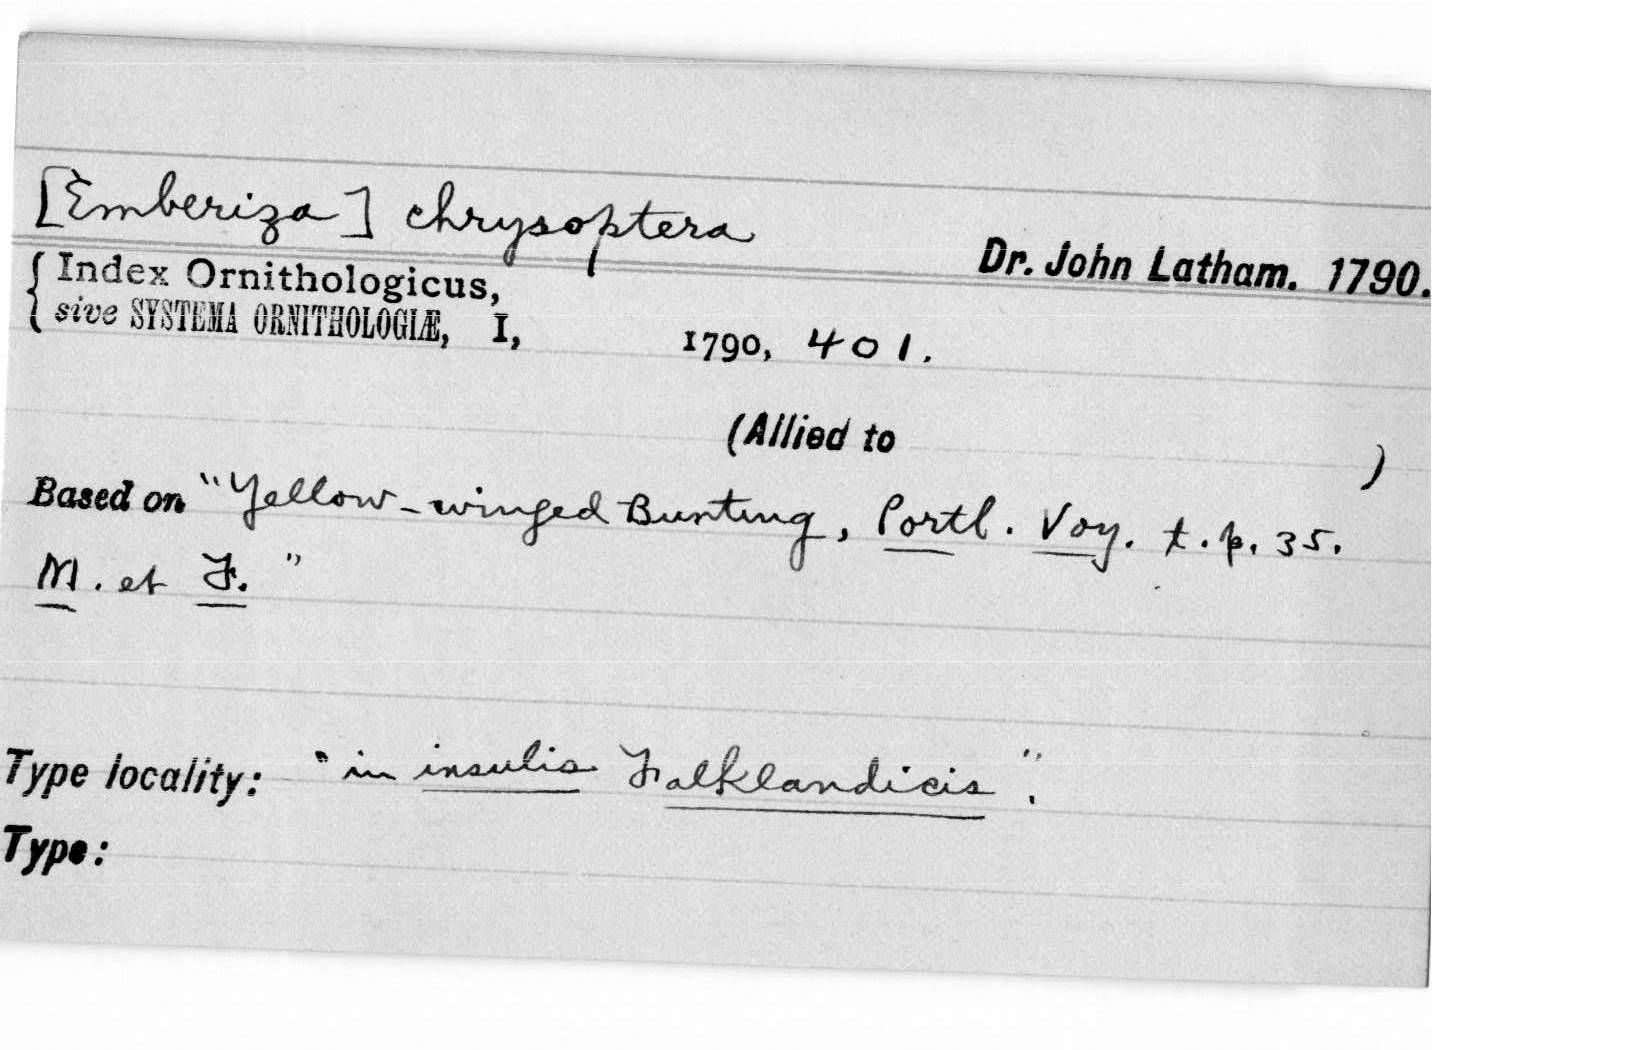 [Emberiza] chrysoptera
Dr. John Latham. 1790.
Index Ornithologicus,
sive SYSTEMA ORNITHOLOGIÆ, I, 1790, 401.
(Allied to )
Based on "Yellow-winged Bunting, Portl. Voy. t. p. 35.
M. et F."
Type locality: "in insulis Falklandicis".
Type: